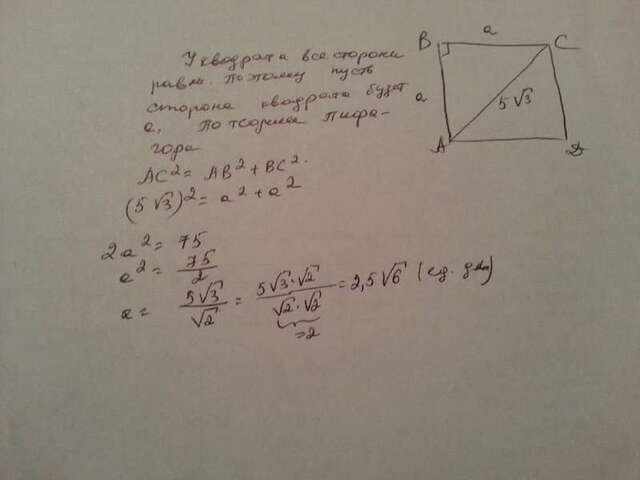 У квадрата все стороны
равны. Поэтому пусть
сторона квадрата будет
a. По теореме Пифа-
гора
AC² = AB² + BC².
(5√3)² = a² + a²
2a² = 75
a² = 75/2
a = 5√3/√2 = 5√3·√2/√2·√2 = 2,5√6 (ед. дл)
=2
B a C
a 5√3
A D